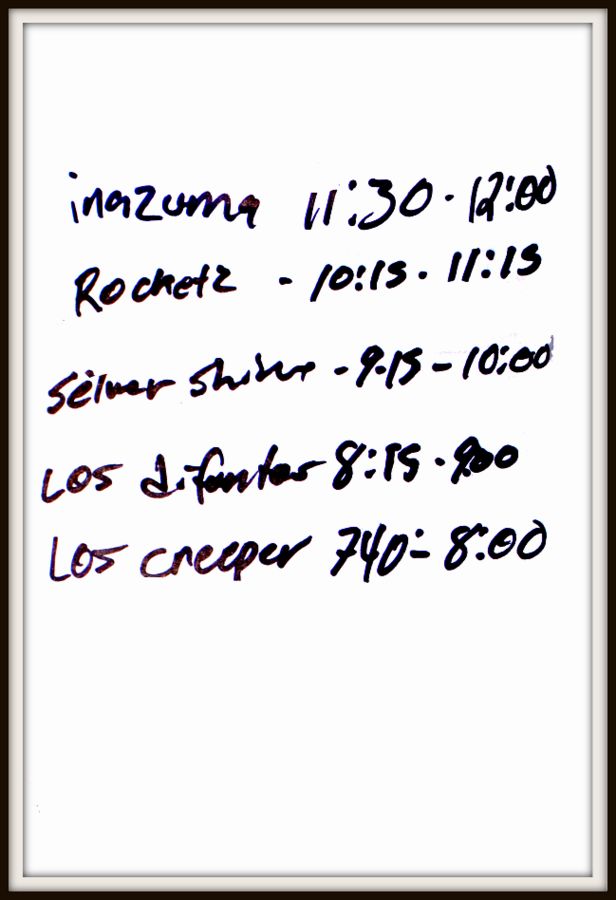 inazuma 11:30 - 12:00
Rocketz - 10:15 - 11:15
- 9.15 - 10:00
Los difuntos 8:15 - 9:00
Los creeper 740:- 8:00